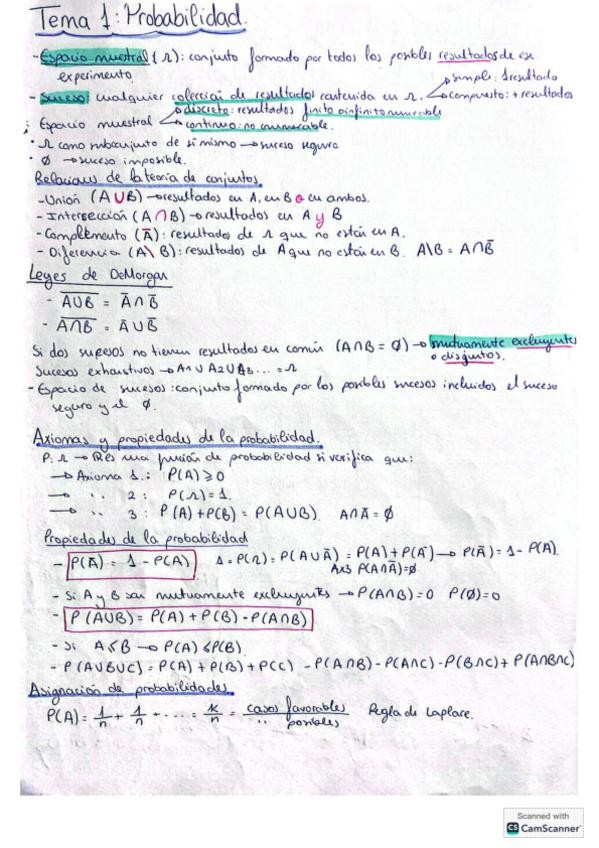 Tema 1: Probabilidad.
- Espacio muestral (Ω): conjunto formado por todos los posibles resultados de ese
experimento
- Suceso: cualquier colección de resultados contenida en Ω.
simple: 1 resultado
compuesto: + resultados
Espacio muestral
discreto: resultados finito o infinito numerable
continuo: no numerable.
· Ω como subconjunto de sí mismo → suceso seguro
· Ø → suceso imposible.
Relaciones de la teoría de conjuntos.
- Unión (A ∪ B) → resultados en A, en B o en ambos.
- Intersección (A ∩ B) → resultados en A y B
- Complemento (Ā): resultados de Ω que no están en A.
- Diferencia (A \ B): resultados de A que no están en B. A\B = A∩B̄
Leyes de DeMorgan
- \overline{A∪B} = Ā ∩ B̄
- \overline{A∩B} = Ā ∪ B̄
Si dos sucesos no tienen resultados en común (A∩B = Ø) → mutuamente excluyentes
o disjuntos.
Sucesos exhaustivos → A1 ∪ A2 ∪ A3 ... = Ω
- Espacio de sucesos: conjunto formado por los posibles sucesos incluidos el suceso
seguro y el Ø.
Axiomas y propiedades de la probabilidad.
P: Ω → R es una función de probabilidad si verifica que:
→ Axioma 1.: P(A) ≥ 0
→ '' 2: P(Ω) = 1.
→ '' 3: P(A) + P(B) = P(A∪B). A∩Ā = Ø
Propiedades de la probabilidad
- P(Ā) = 1 - P(A) 1 = P(Ω) = P(A∪Ā) = P(A) + P(Ā) → P(Ā) = 1 - P(A).
Ax3 P(A∩Ā)=Ø
- Si A y B son mutuamente excluyentes → P(A∩B) = 0 P(Ø) = 0
- P(A∪B) = P(A) + P(B) - P(A∩B)
- Si A ≤ B → P(A) ≤ P(B).
- P(A∪B∪C) = P(A) + P(B) + P(C) - P(A∩B) - P(A∩C) - P(B∩C) + P(A∩B∩C)
Asignación de probabilidades.
P(A) = 1/n + 1/n + ... = k/n = casos favorables / '' posibles Regla de Laplace.
Scanned with
CS CamScanner